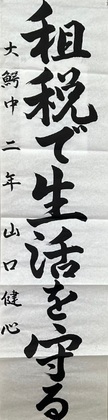 租税で生活を守る
大鰐中二年 山口健心